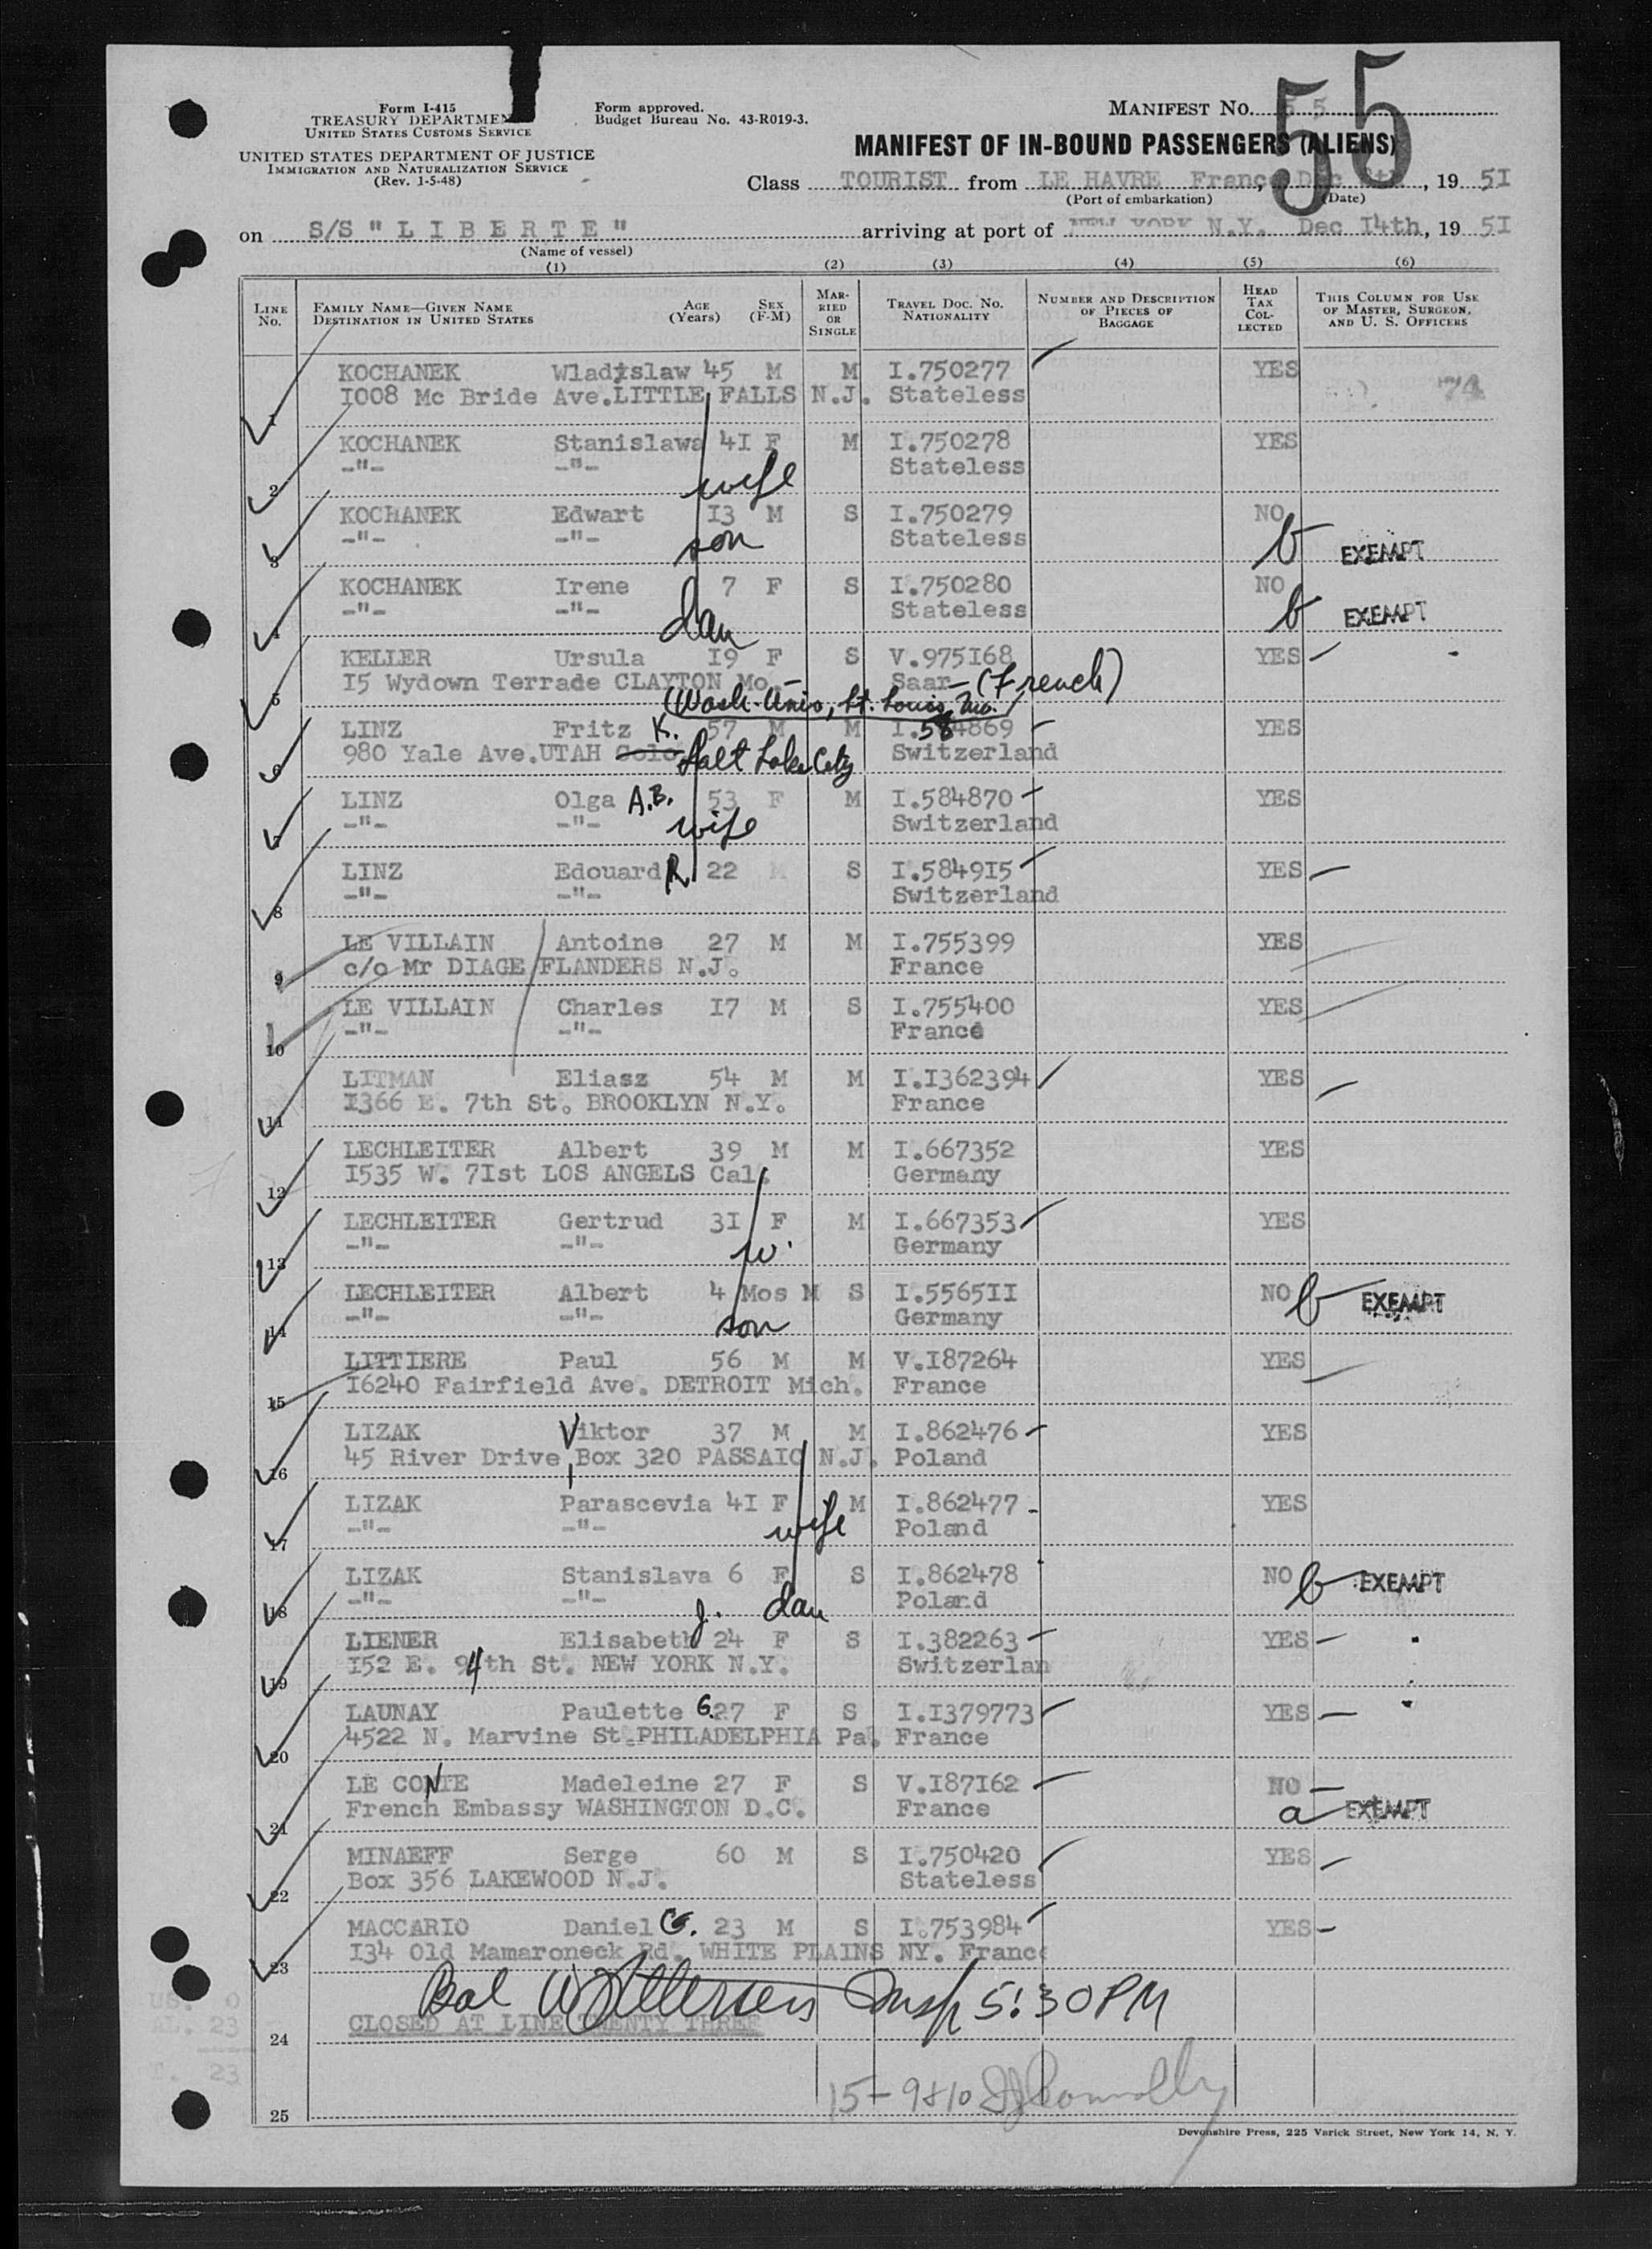 Form I-415
TREASURY DEPARTMENT
UNITED STATES CUSTOMS SERVICE
UNITED STATES DEPARTMENT OF JUSTICE
IMMIGRATION AND NATURALIZATION SERVICE
(Rev. 1-5-48)
Form approved.
Budget Bureau No. 43-R019-3.
MANIFEST NO. 55
55
MANIFEST OF IN-BOUND PASSENGERS (ALIENS)
Class TOURIST from LE HAVRE France, Dec , 19 51
(Port of embarkation) (Date)
on S/S "LIBERTE" arriving at port of NEW YORK N.Y. Dec I4th, 19 5I
(Name of vessel)
(1) (2) (3) (4) (5) (6)
LINE No. FAMILY NAME—GIVEN NAME DESTINATION IN UNITED STATES AGE (Years) SEX (F-M) MARRIED OR SINGLE TRAVEL DOC. NO. NATIONALITY NUMBER AND DESCRIPTION OF PIECES OF BAGGAGE HEAD TAX COLLECTED THIS COLUMN FOR USE OF MASTER, SURGEON, AND U. S. OFFICERS
KOCHANEK Wladislaw 45 M M I.750277 YES
1 I008 Mc Bride Ave.LITTLE FALLS N.J. Stateless 74
KOCHANEK Stanislawa 4I F M I.750278 YES
2 -"- -"- wife Stateless
KOCHANEK Edwart I3 M S I.750279 NO
3 -"- -"- son Stateless b EXEMPT
KOCHANEK Irene 7 F S I.750280 NO
4 -"- -"- dau Stateless b EXEMPT
KELLER Ursula I9 F S V.975I68 YES
5 I5 Wydown Terrade CLAYTON Mo Saar - (French)
(Wash. Univ, St. Louis, Mo.)
LINZ Fritz K. 57 M M I.584869 YES
6 980 Yale Ave.UTAH Colo Salt Lake City Switzerland
LINZ Olga A.B. 53 F M I.584870 YES
7 -"- -"- wife Switzerland
LINZ Edouard R 22 M S I.5849I5 YES
8 -"- -"- Switzerland
LE VILLAIN Antoine 27 M M I.755399 YES
9 c/o Mr DIAGE FLANDERS N.J. France
LE VILLAIN Charles I7 M S I.755400 YES
10 -"- -"- France
LITMAN Eliasz 54 M M I.I362394 YES
11 I366 E. 7th St. BROOKLYN N.Y. France
LECHLEITER Albert 39 M M I.667352 YES
12 I535 W. 7Ist LOS ANGELS Cal. Germany
LECHLEITER Gertrud 3I F M I.667353 YES
13 -"- -"- w. Germany
LECHLEITER Albert 4 Mos M S I.5565II NO b EXEMPT
14 -"- -"- son Germany
LITTIERE Paul 56 M M V.I87264 YES
15 I6240 Fairfield Ave. DETROIT Mich. France
LIZAK Viktor 37 M M I.862476 YES
16 45 River Drive, Box 320 PASSAIC N.J. Poland
LIZAK Parascevia 4I F M I.862477 YES
17 -"- -"- wife Poland
LIZAK Stanislava 6 F S I.862478 NO b EXEMPT
18 -"- -"- dau Poland
LIENER Elisabeth J. 24 F S I.382263 YES
19 I52 E. 94th St. NEW YORK N.Y. Switzerlan
LAUNAY Paulette G. 27 F S I.I379773 YES
20 4522 N. Marvine St.PHILADELPHIA Pa. France
LE CONTE Madeleine 27 F S V.I87I62 NO
21 French Embassy WASHINGTON D.C. France a EXEMPT
MINAEFF Serge 60 M S I.750420 YES
22 Box 356 LAKEWOOD N.J. Stateless
MACCARIO Daniel G. 23 M S I.753984 YES
23 I34 Old Mamaroneck Rd. WHITE PLAINS NY. France
Bal Insp 5:30 PM
US. 0
AL. 23
T. 23
24 CLOSED AT LINE TWENTY THREE
15 - 9+10
25
Devonshire Press, 225 Varick Street, New York 14, N. Y.